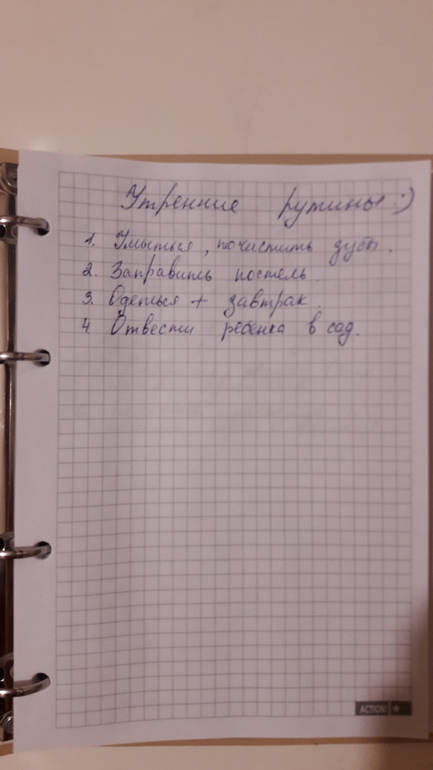 Утренние рутины :)
1. Умыться, почистить зубы.
2. Заправить постель.
3. Одеться + завтрак.
4. Отвести ребенка в сад.
ACTION!